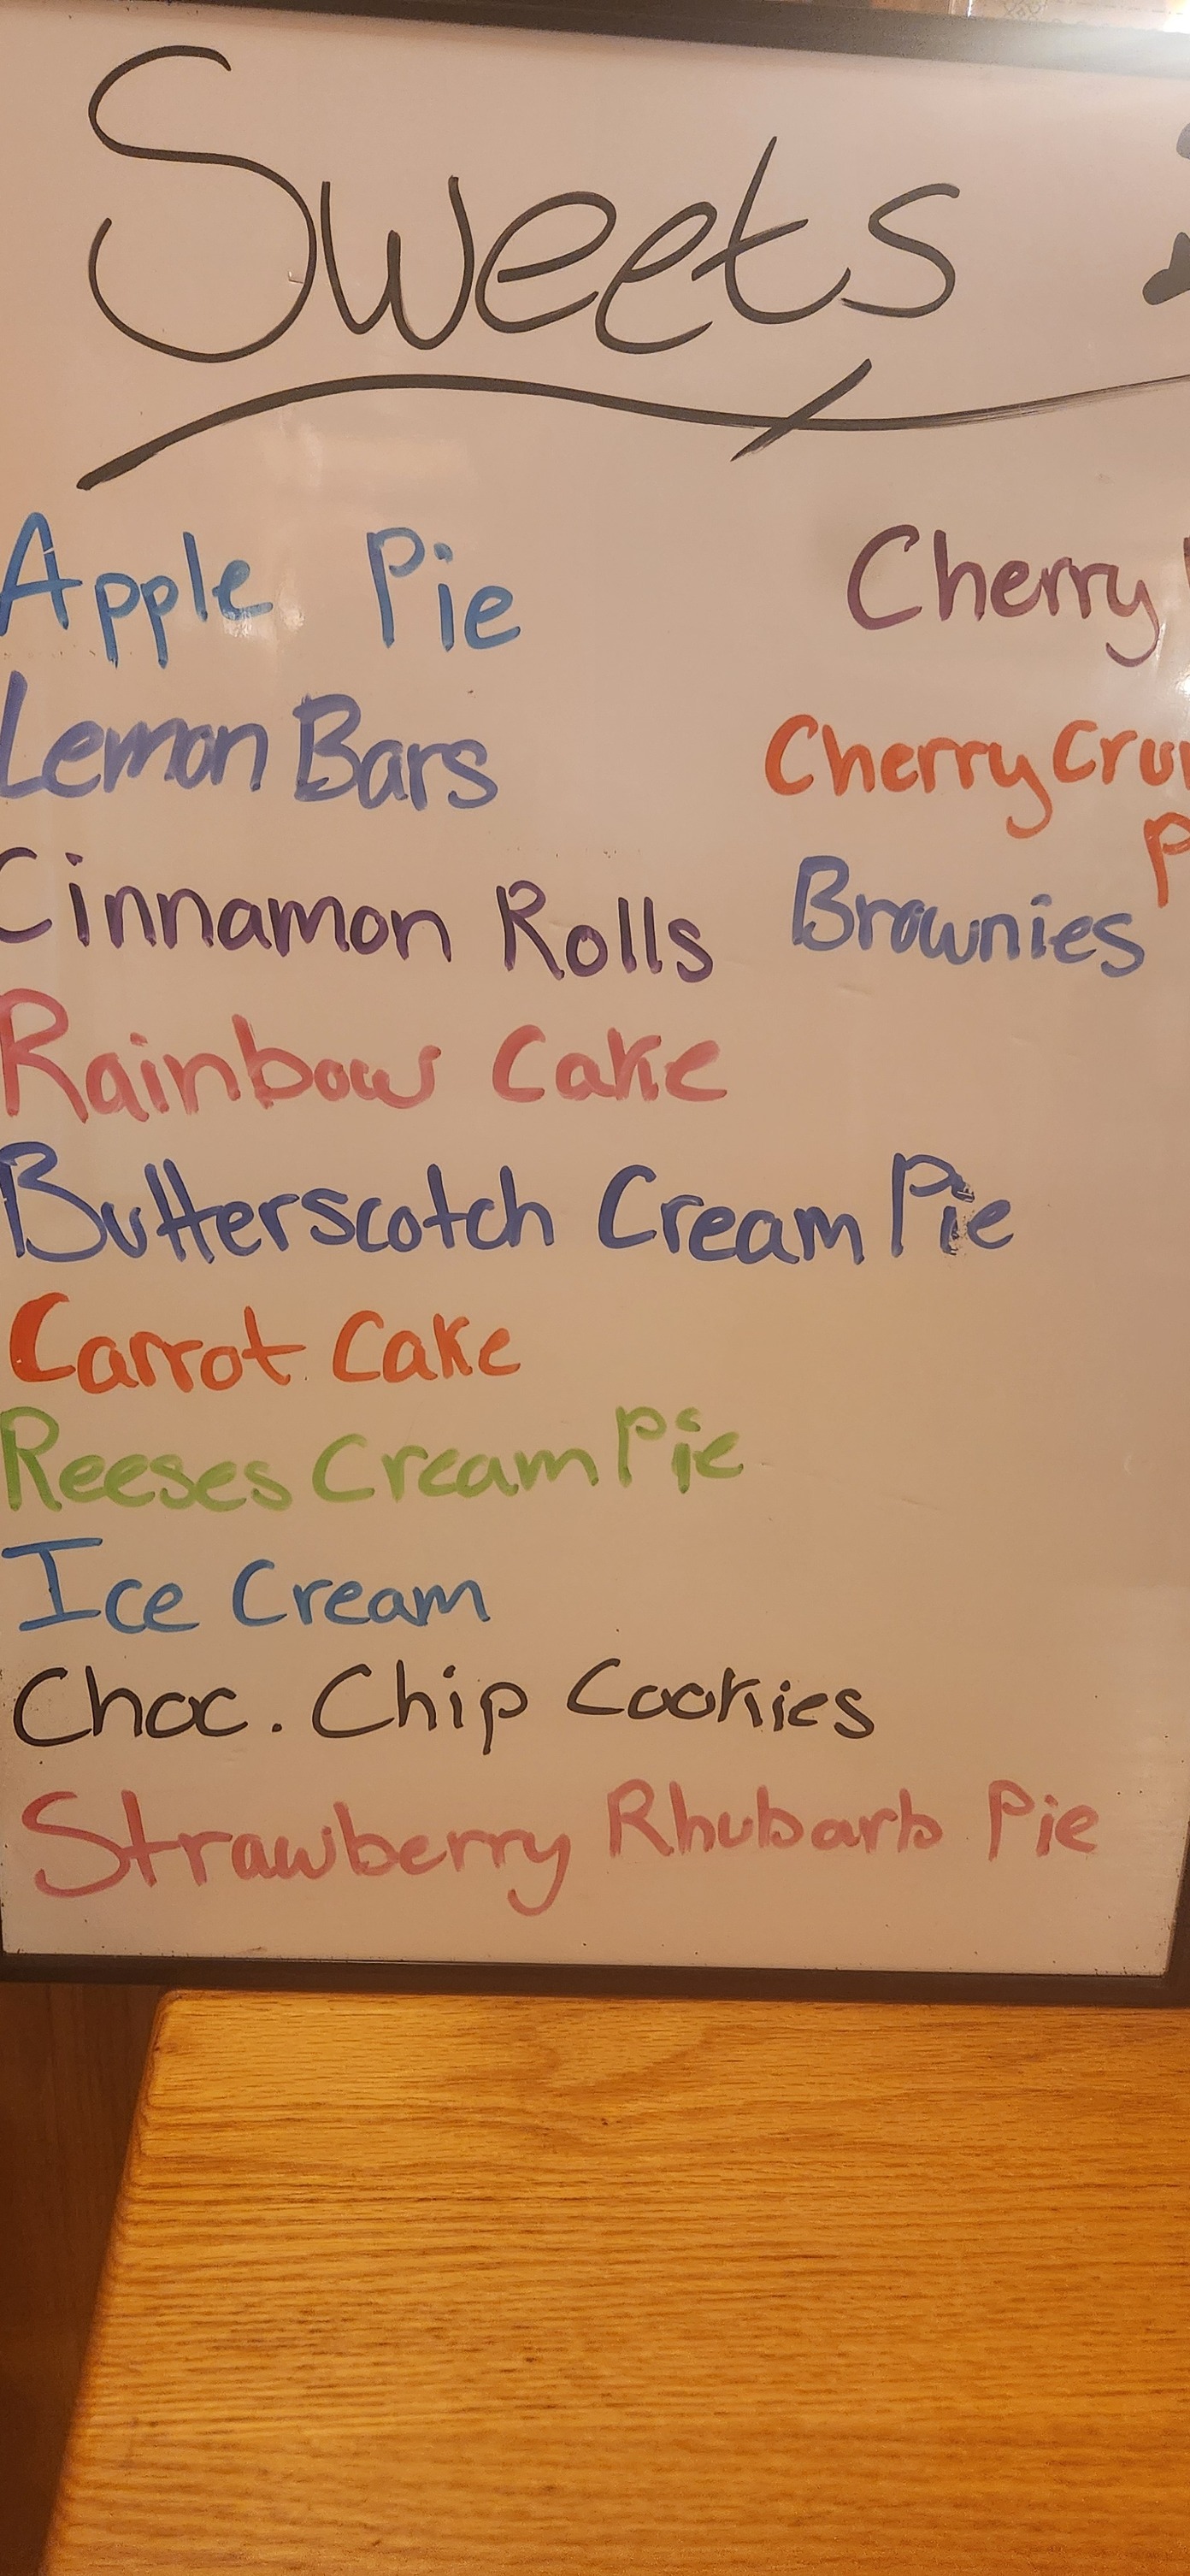 Sweets
Apple Pie
Lemon Bars
Cinnamon Rolls
Rainbow Cake
Butterscotch Cream Pie
Carrot Cake
Reeses Cream Pie
Ice Cream
Choc. Chip Cookies
Strawberry Rhubarb Pie
Cherry
Cherry
Brownies